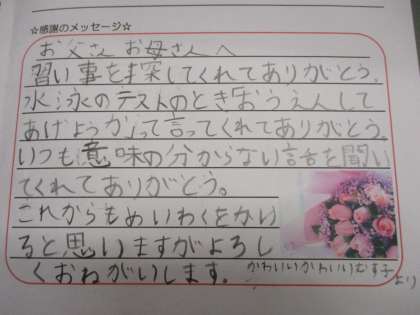 ☆感謝のメッセージ☆
お父さん お母さん へ
習い事を探してくれてありがとう。
水泳のテストのとき「おうえんして
あげようか」って言ってくれてありがとう。
いつも意味の分からない話を聞い
てくれてありがとう。
これからもめいわくをかけ
ると思いますがよろし
くおねがいします。
かわいいかわいいむす子
より